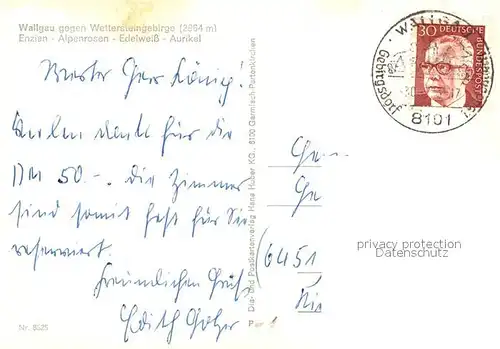 Wallgau gegen Wettersteingebirge (2964 m)
Enzian - Alpenrosen - Edelweiß - Aurikel
Werter Herr König!
Vielen Dank für die
DM 50.-. die Zimmer
sind somit fest für Sie
reserviert.
Freundlichen Grüß
Edith
Nr. 8625
Dia- und Postkartenverlag Hans Huber KG., 8100 Garmisch-Partenkirchen
30 DEUTSCHE BUNDESPOST
WALLGAU
Gebirgsdorf
8101
6451
privacy protection
Datenschutz